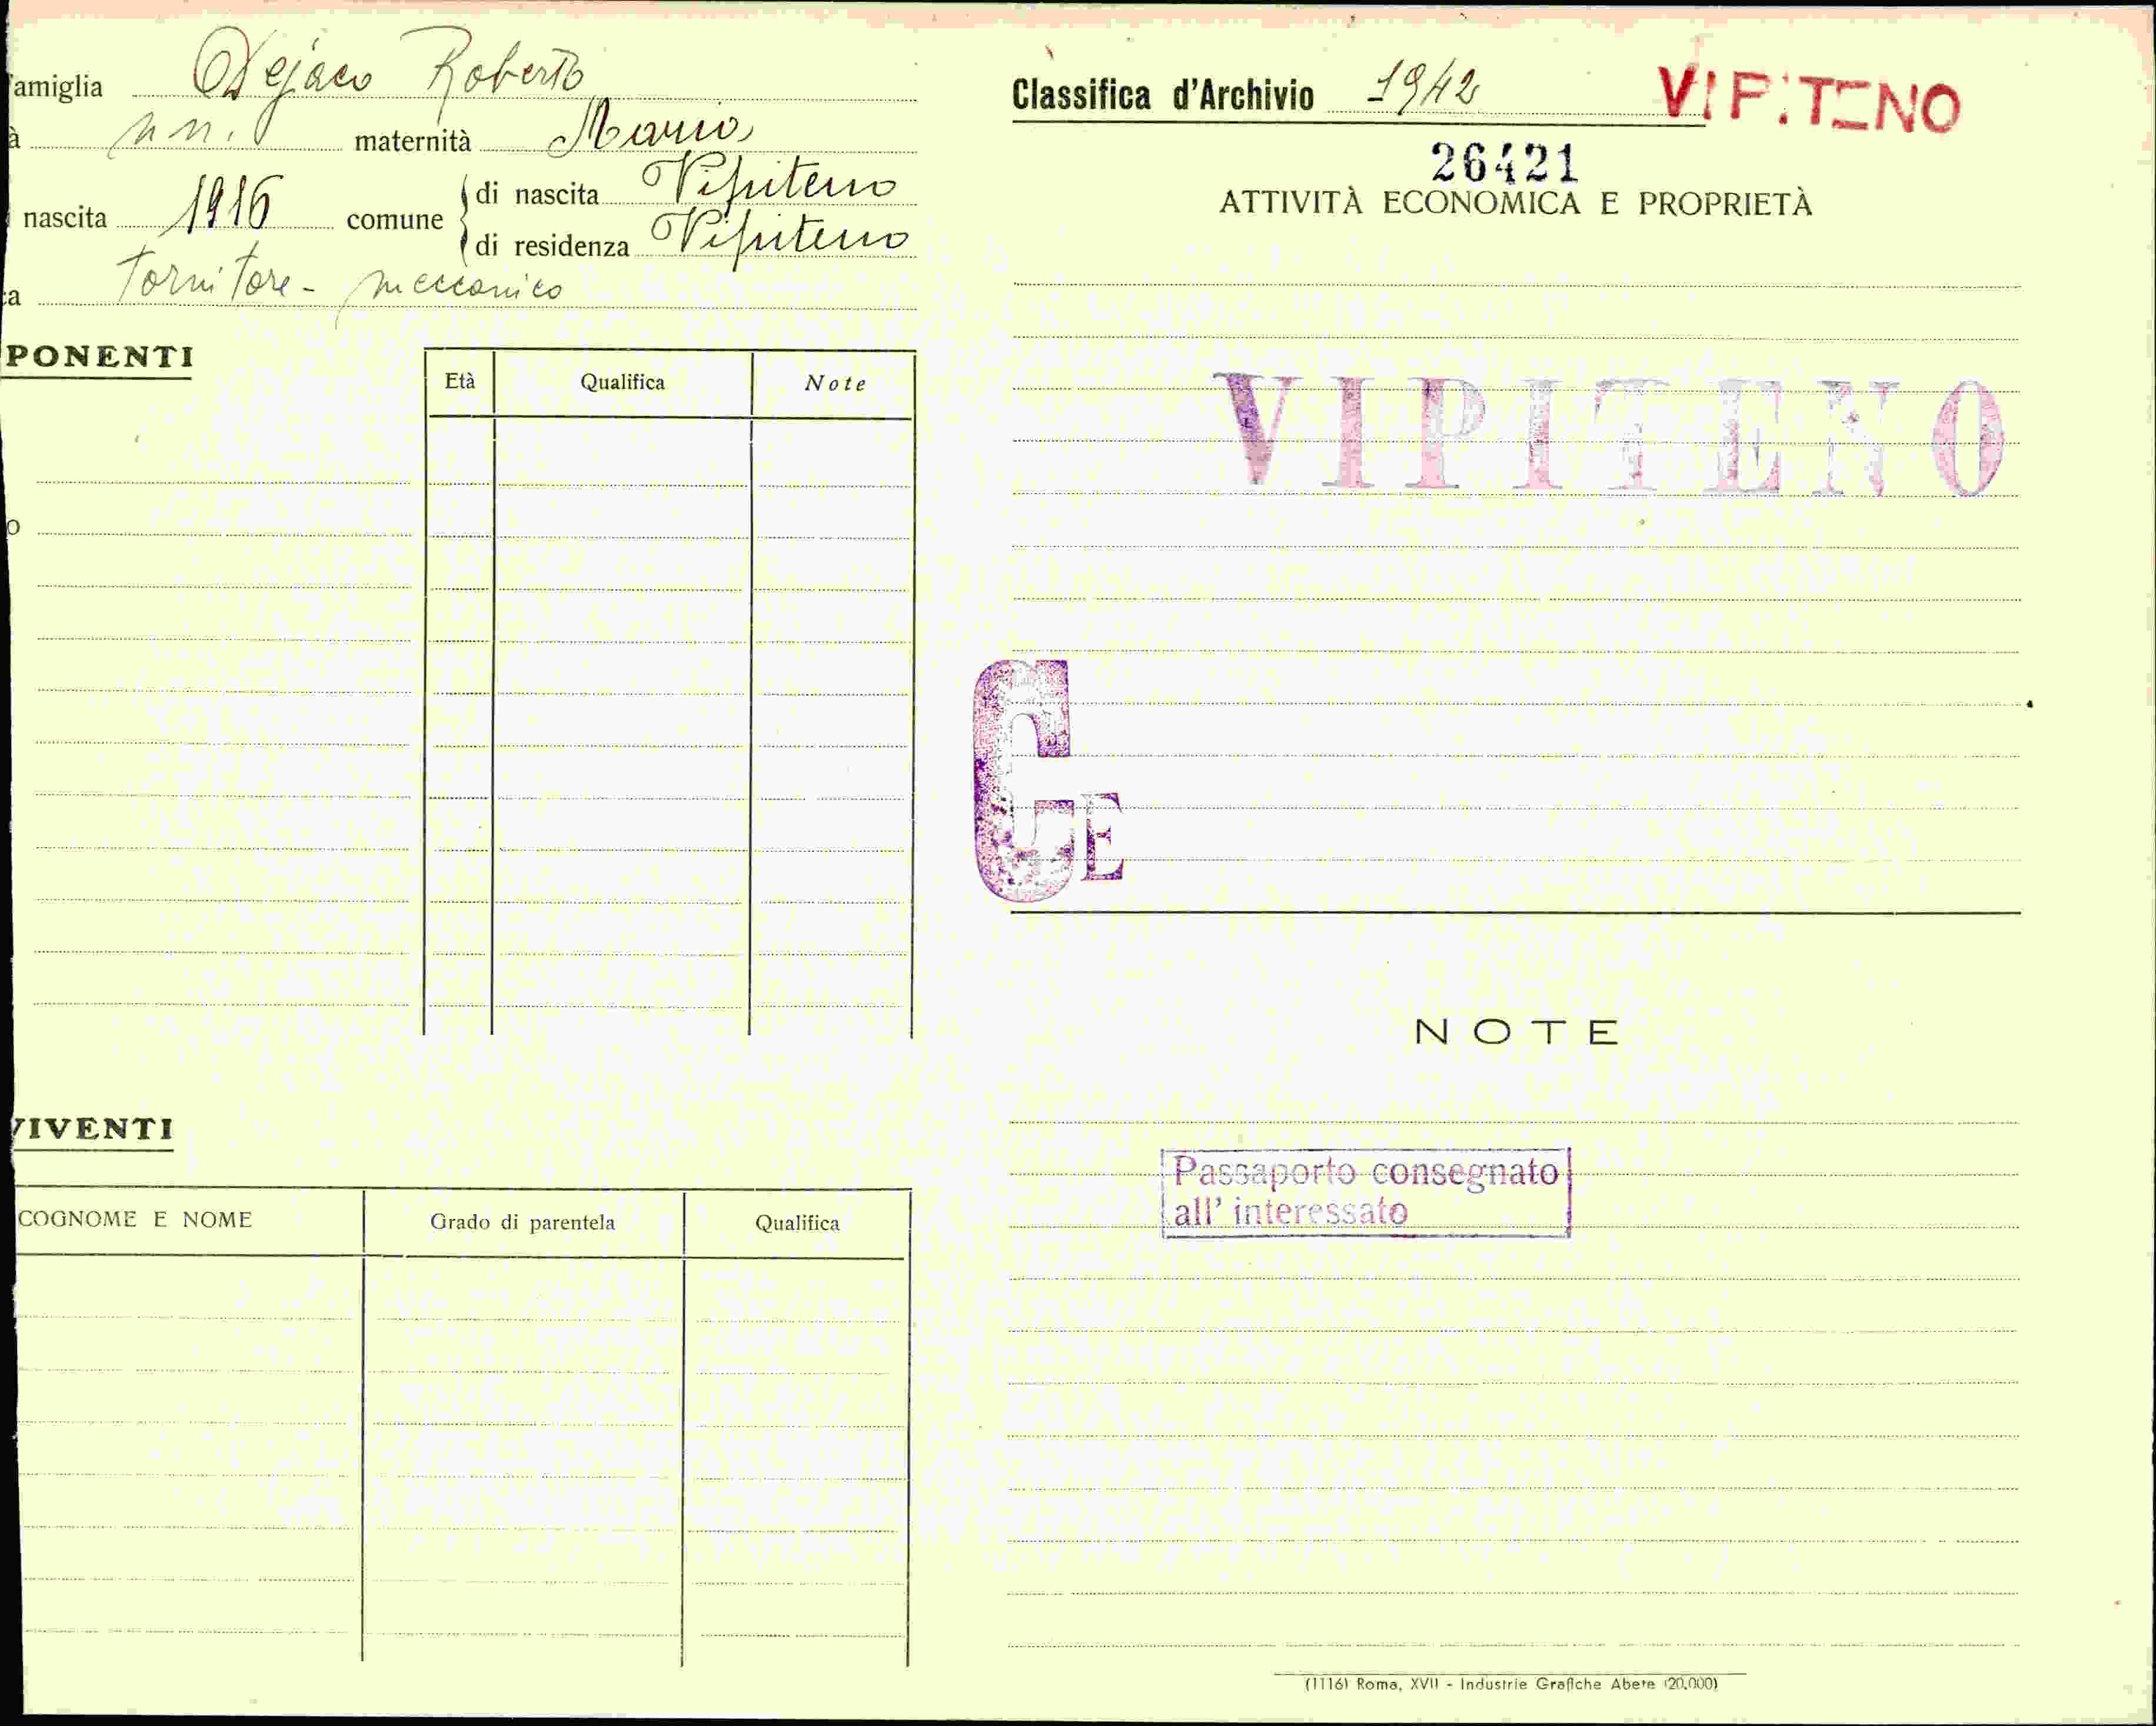 amiglia Dejaco Roberto
à n n. maternità Maria
nascita 1916 comune di nascita Vipiteno
di residenza Vipiteno
a Tornitore - meccanico
PONENTI
Età Qualifica Note
o
VIVENTI
COGNOME E NOME Grado di parentela Qualifica
Classifica d'Archivio 1942 VIPITENO
26421
ATTIVITÀ ECONOMICA E PROPRIETÀ
VIPITENO
CE
NOTE
Passaporto consegnato
all' interessato
(1116) Roma, XVII - Industrie Grafiche Abete (20.000)